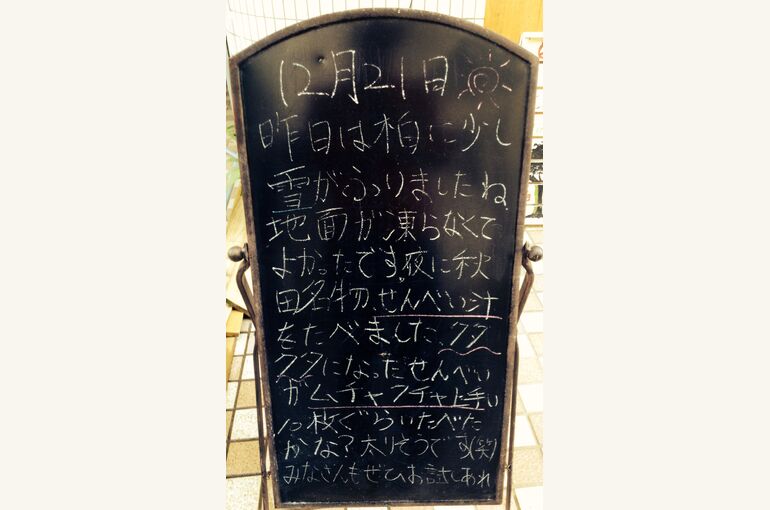 12月21日
昨日は柏に少し
雪がふりましたね
地面が凍らなくて
よかったです。夜に秋
田名物、せんべい汁
をたべました、クタ
クタになったせんべい
がムチャクチャ上手い
10枚ぐらいたべた
かな?太りそうです(笑)
みなさんもぜひお試しあれ